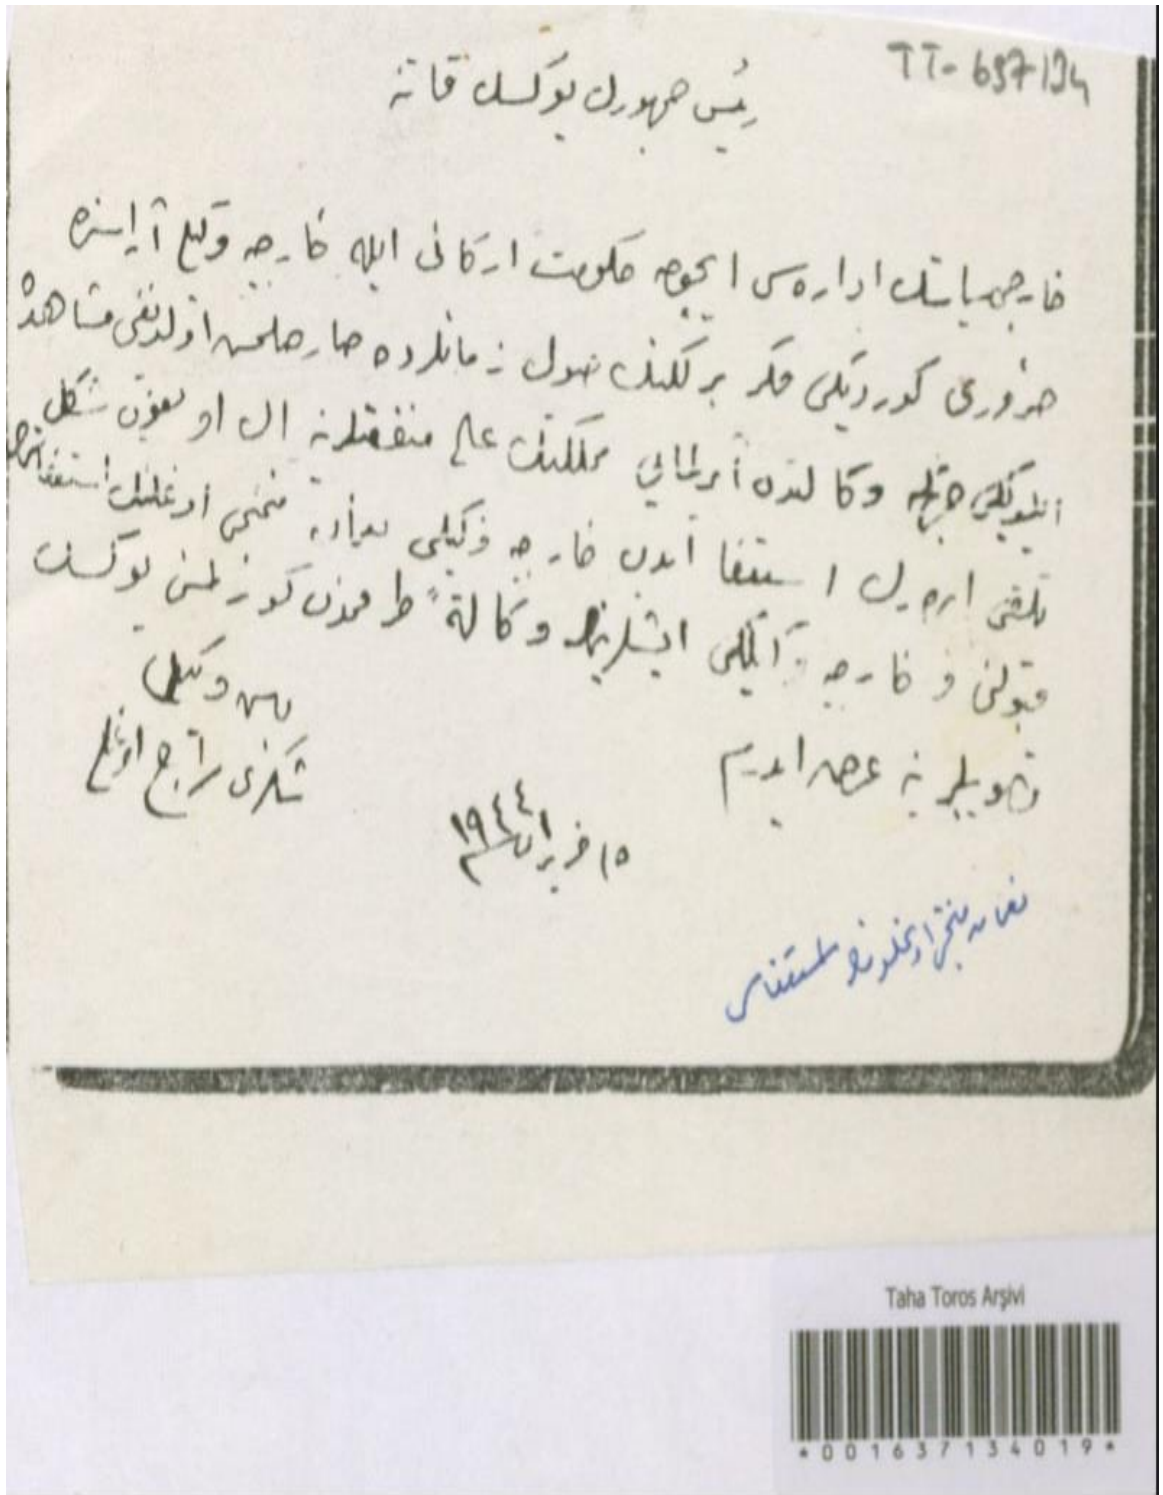 TT-637134
رئيس جمهورلق يوكسك قاتنه
خارجى سياستك اداره سى ايچون حكومت اركانى ايله خارجيه وكيلى آراسنده
ضرورى كورديكى فكر برلكنك صوك زمانلرده صارصلمش اولديغنى مشاهده
ايتديكى جهتله وكالتدن آيرلمايى مملكتك عالى منفعتلرينه ال اويغون شكل
تلقى ايده رك استعفا ايدن خارجيه وكيلى نعمان منمنجى اوغلنك استعفاسنك
قبولنى و خارجيه وكيللكى ايشلرينك وكالةً طرفمدن كورلمسنى يوكسك
تصويبلرينه عرض ايدرم
باش وكيل
شكرى سراج اوغلى
١٥ حزيران ١٩٤٤
نعمان منمنجى اوغلونك استعفاسى
Taha Toros Arşivi
*001637134019*